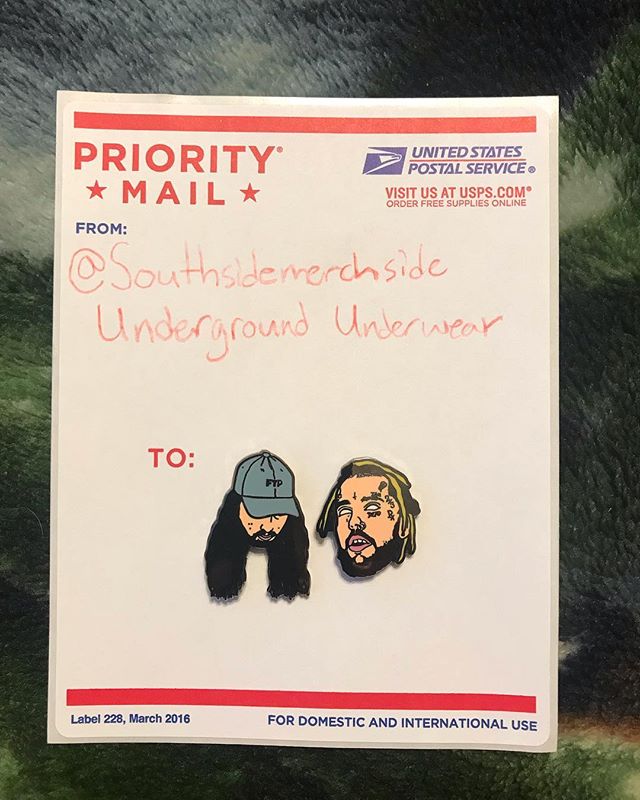 PRIORITY®
★ MAIL ★
UNITED STATES
POSTAL SERVICE®
VISIT US AT USPS.COM®
ORDER FREE SUPPLIES ONLINE
FROM:
@Southsidemerchside
Underground Underwear
TO:
FTP
Label 228, March 2016
FOR DOMESTIC AND INTERNATIONAL USE